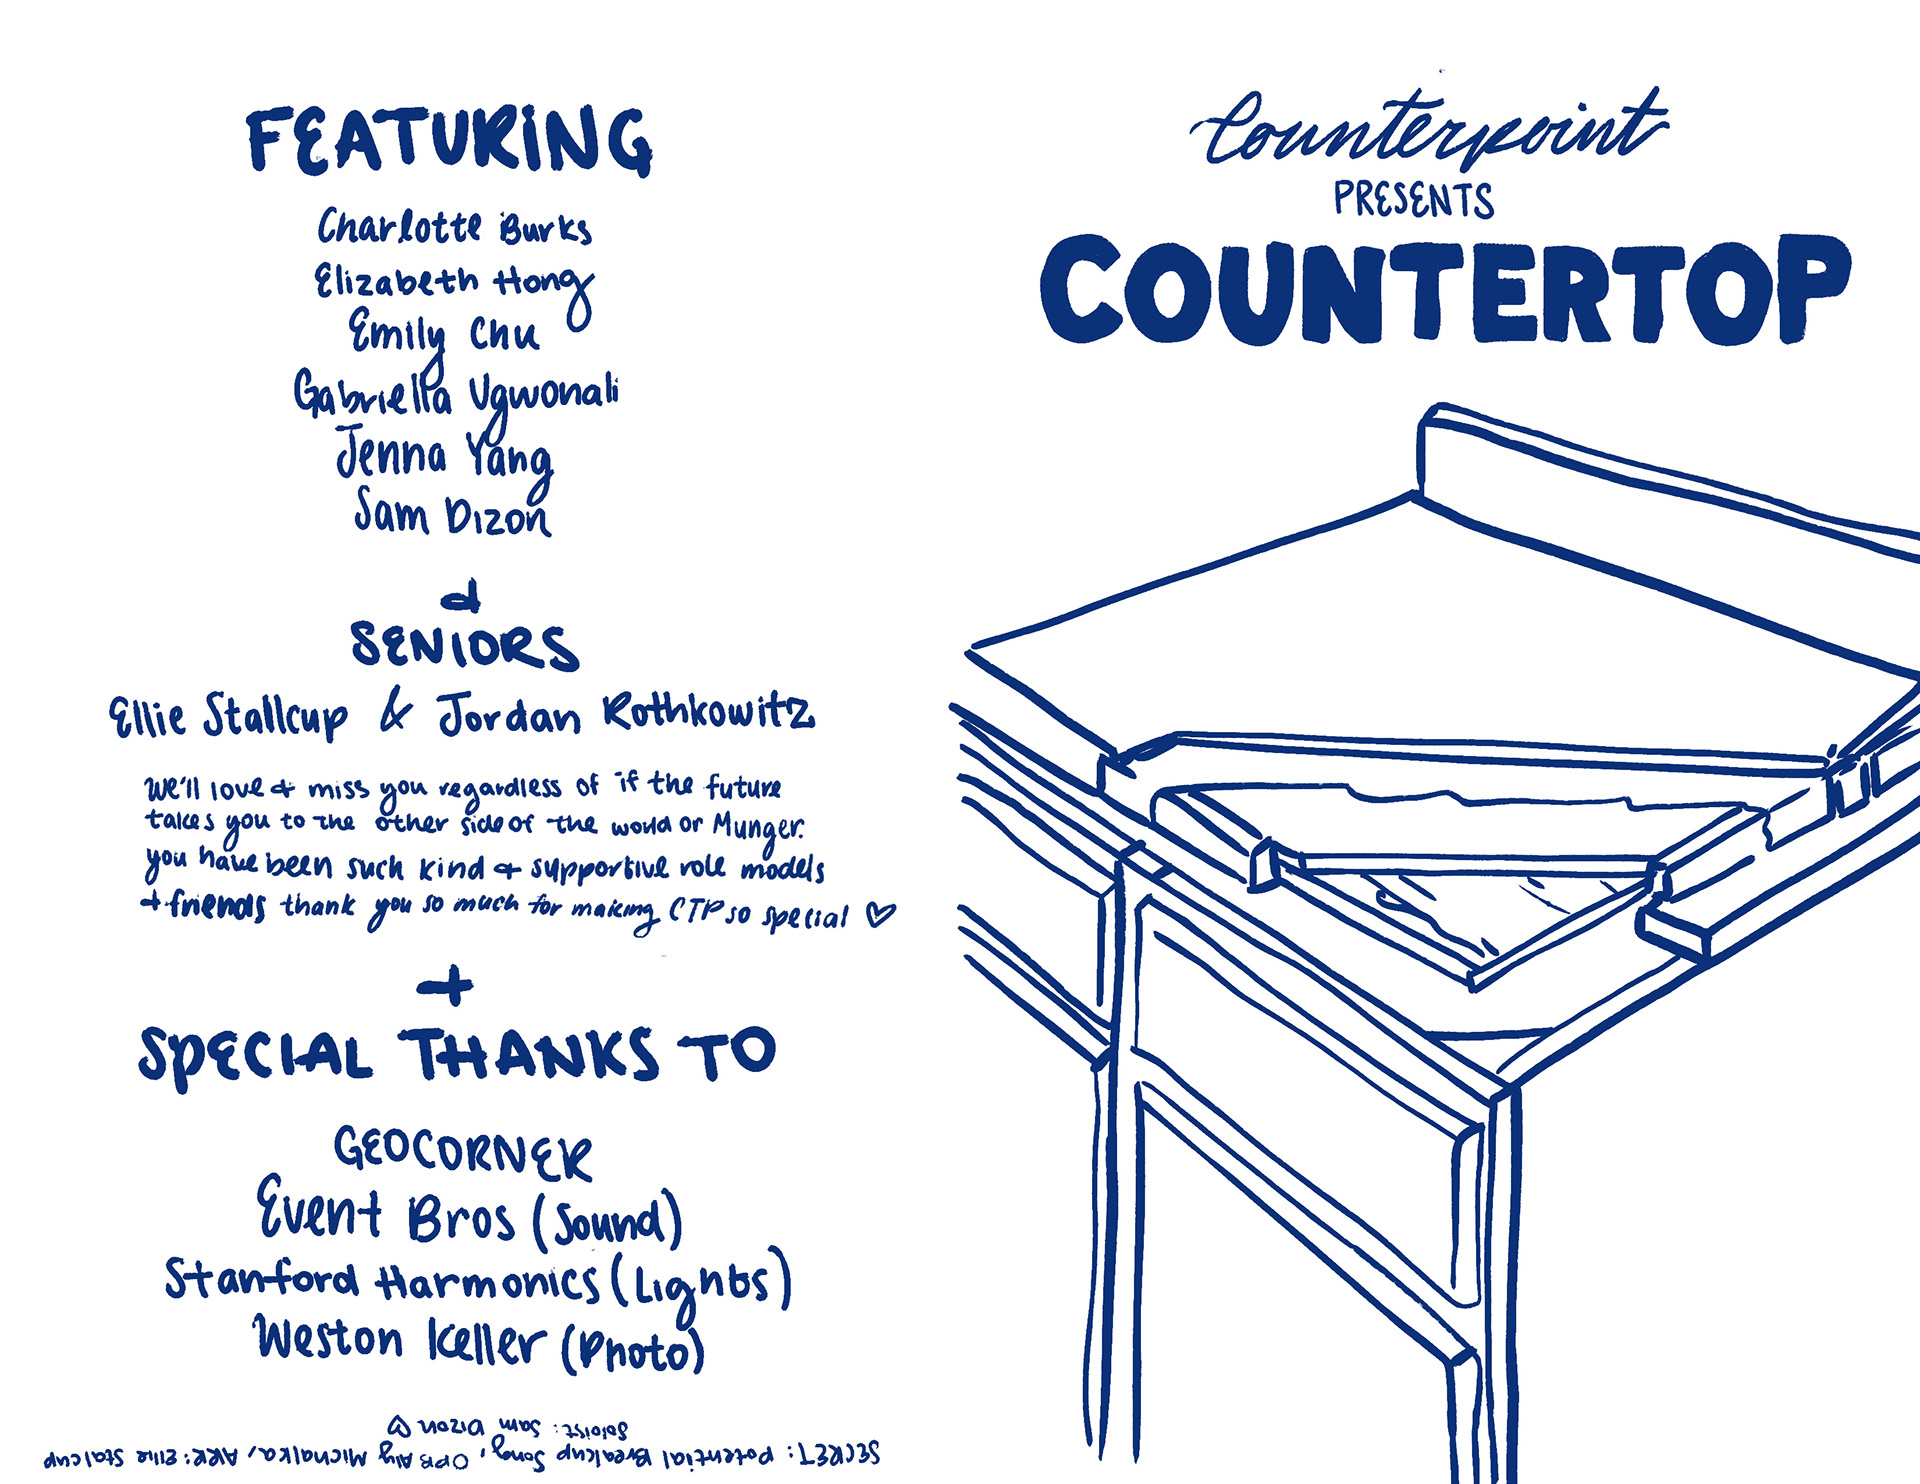 FEATURING
Charlotte Burks
Elizabeth Hong
Emily Chu
Gabriella Ugwonali
Jenna Yang
Sam Dizon
&
SENIORS
Ellie Stallcup & Jordan Rothkowitz
We'll love & miss you regardless of if the future
takes you to the other side of the world or Munger.
you have been such kind & supportive role models
+ friends thank you so much for making CTP so special ♡
+
SPECIAL THANKS TO
GEOCORNER
Event Bros (Sound)
Stanford Harmonics (Lights)
Weston Keller (Photo)
SECRET: Potential Breakup Song, OPB Aly Michalka, ARR: Ellie Stalcup
Soloist: Sam Dizon ♡
Counterpoint
PRESENTS
COUNTERTOP